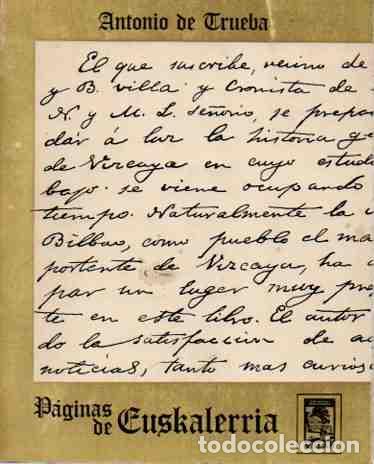 Antonio de Trueba
El que suscribe, vecino de
y B. villa y Cronista de
N. y M. L. señorio, se prepa
dár á luz la historia ge
de Vizcaya en cuyo estud
bajo se viene ocupando
tiempo. Naturalmente la v
Bilbao, como pueblo el ma
portente de Vizcaya, ha
par un luger muy pre
te en este libro. El autor
do la satisfaccion de a
noticias, tanto mas curios
Páginas
de Euskalerria
todocoleccion.net